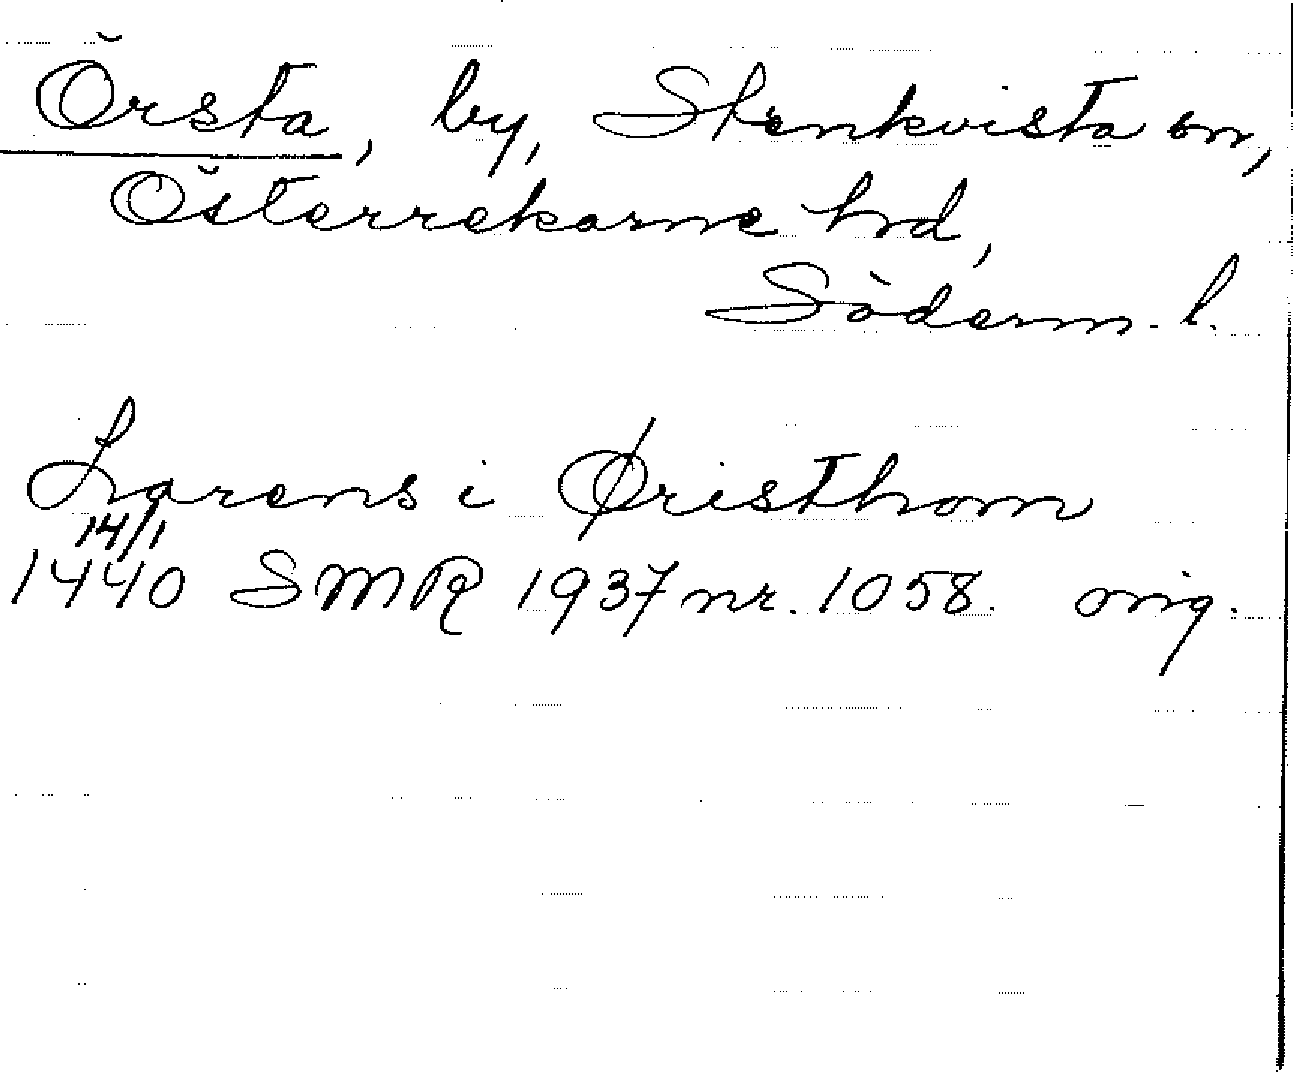 Örsta, by, Stenkvista sn,
Österrekarne hrd,
Söderm. l.
Larens i Øristhom
14/1
1440 SMR 1937 nr. 1058. orig.